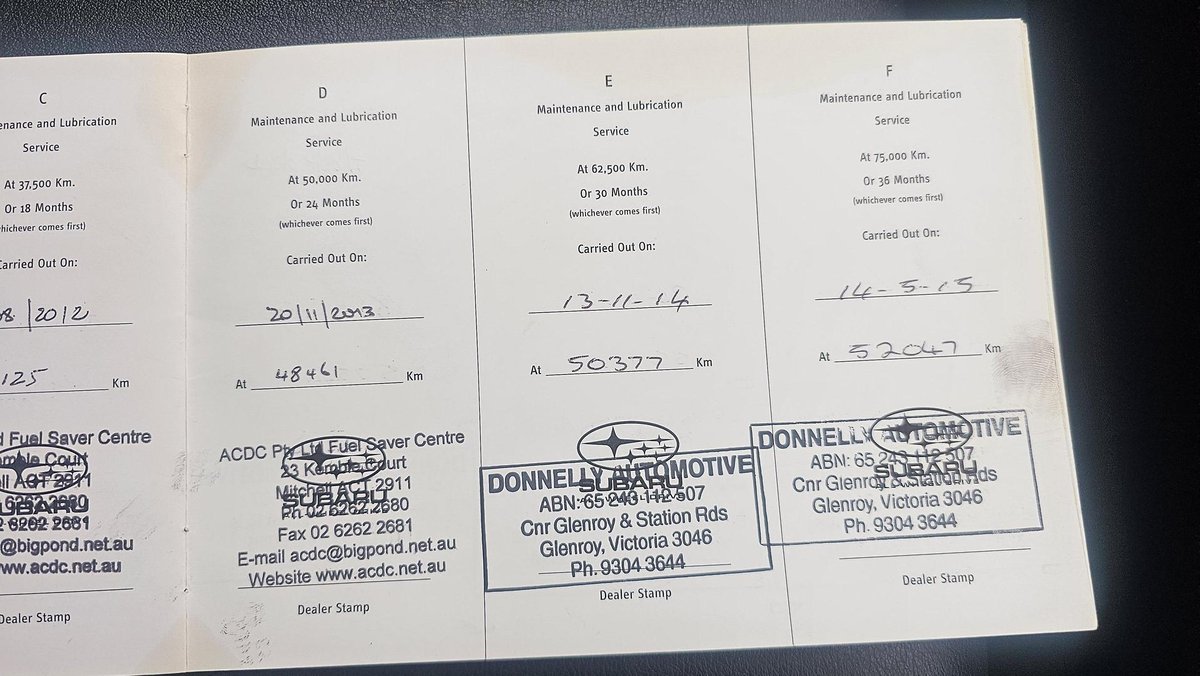 C
enance and Lubrication
Service
At 37,500 Km.
Or 18 Months
whichever comes first)
Carried Out On:
08/2012
125 Km
d Fuel Saver Centre
Kemble Court
ll ACT 2911
6262 2680
2 6262 2681
@bigpond.net.au
ww.acdc.net.au
Dealer Stamp
D
Maintenance and Lubrication
Service
At 50,000 Km.
Or 24 Months
(whichever comes first)
Carried Out On:
20/11/2013
At 48461 Km
ACDC Pty Ltd Fuel Saver Centre
23 Kemble Court
Mitchell ACT 2911
SUBARU
Ph 02 6262 2680
Fax 02 6262 2681
E-mail acdc@bigpond.net.au
Website www.acdc.net.au
Dealer Stamp
E
Maintenance and Lubrication
Service
At 62,500 Km.
Or 30 Months
(whichever comes first)
Carried Out On:
13-11-14
At 50377 Km
DONNELLY AUTOMOTIVE
SUBARU
ABN: 65 243 112 507
Cnr Glenroy & Station Rds
Glenroy, Victoria 3046
Ph. 9304 3644
Dealer Stamp
F
Maintenance and Lubrication
Service
At 75,000 Km.
Or 36 Months
(whichever comes first)
Carried Out On:
14-5-15
At 52047 Km
DONNELLY AUTOMOTIVE
ABN: 65 243 112 507
SUBARU
Cnr Glenroy & Station Rds
Glenroy, Victoria 3046
Ph. 9304 3644
Dealer Stamp